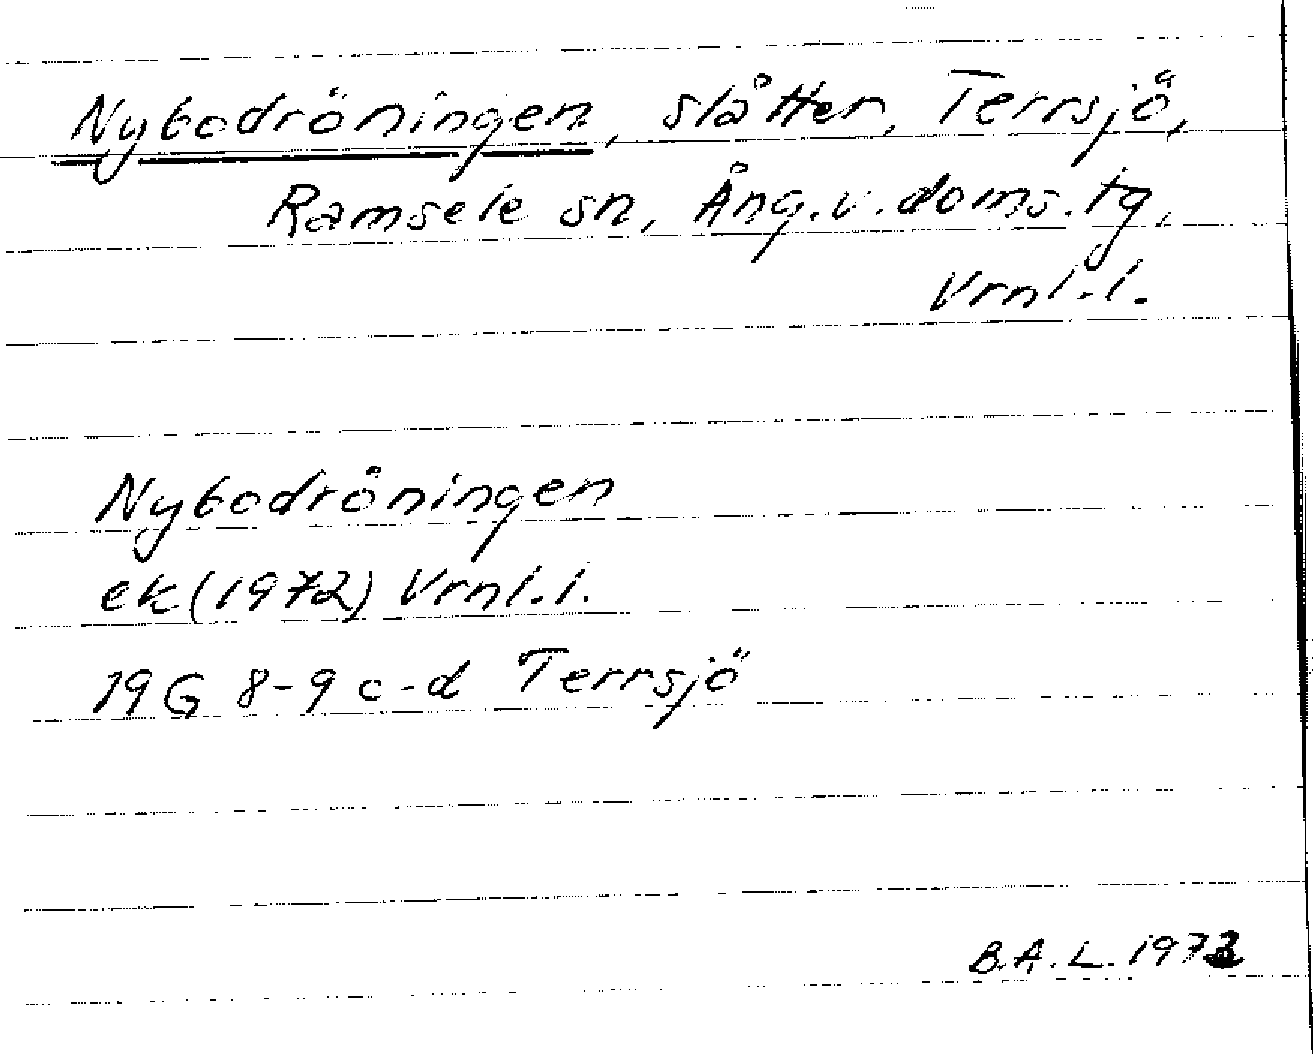 Nybodröningen, slåtter, Terrsjö,
Ramsele sn, Ång.v.doms.tg,
Vrnl.l.
Nybodröningen
ek(1972) Vrnl.l.
19G 8-9 c-d Terrsjö
B.A.L. 1972